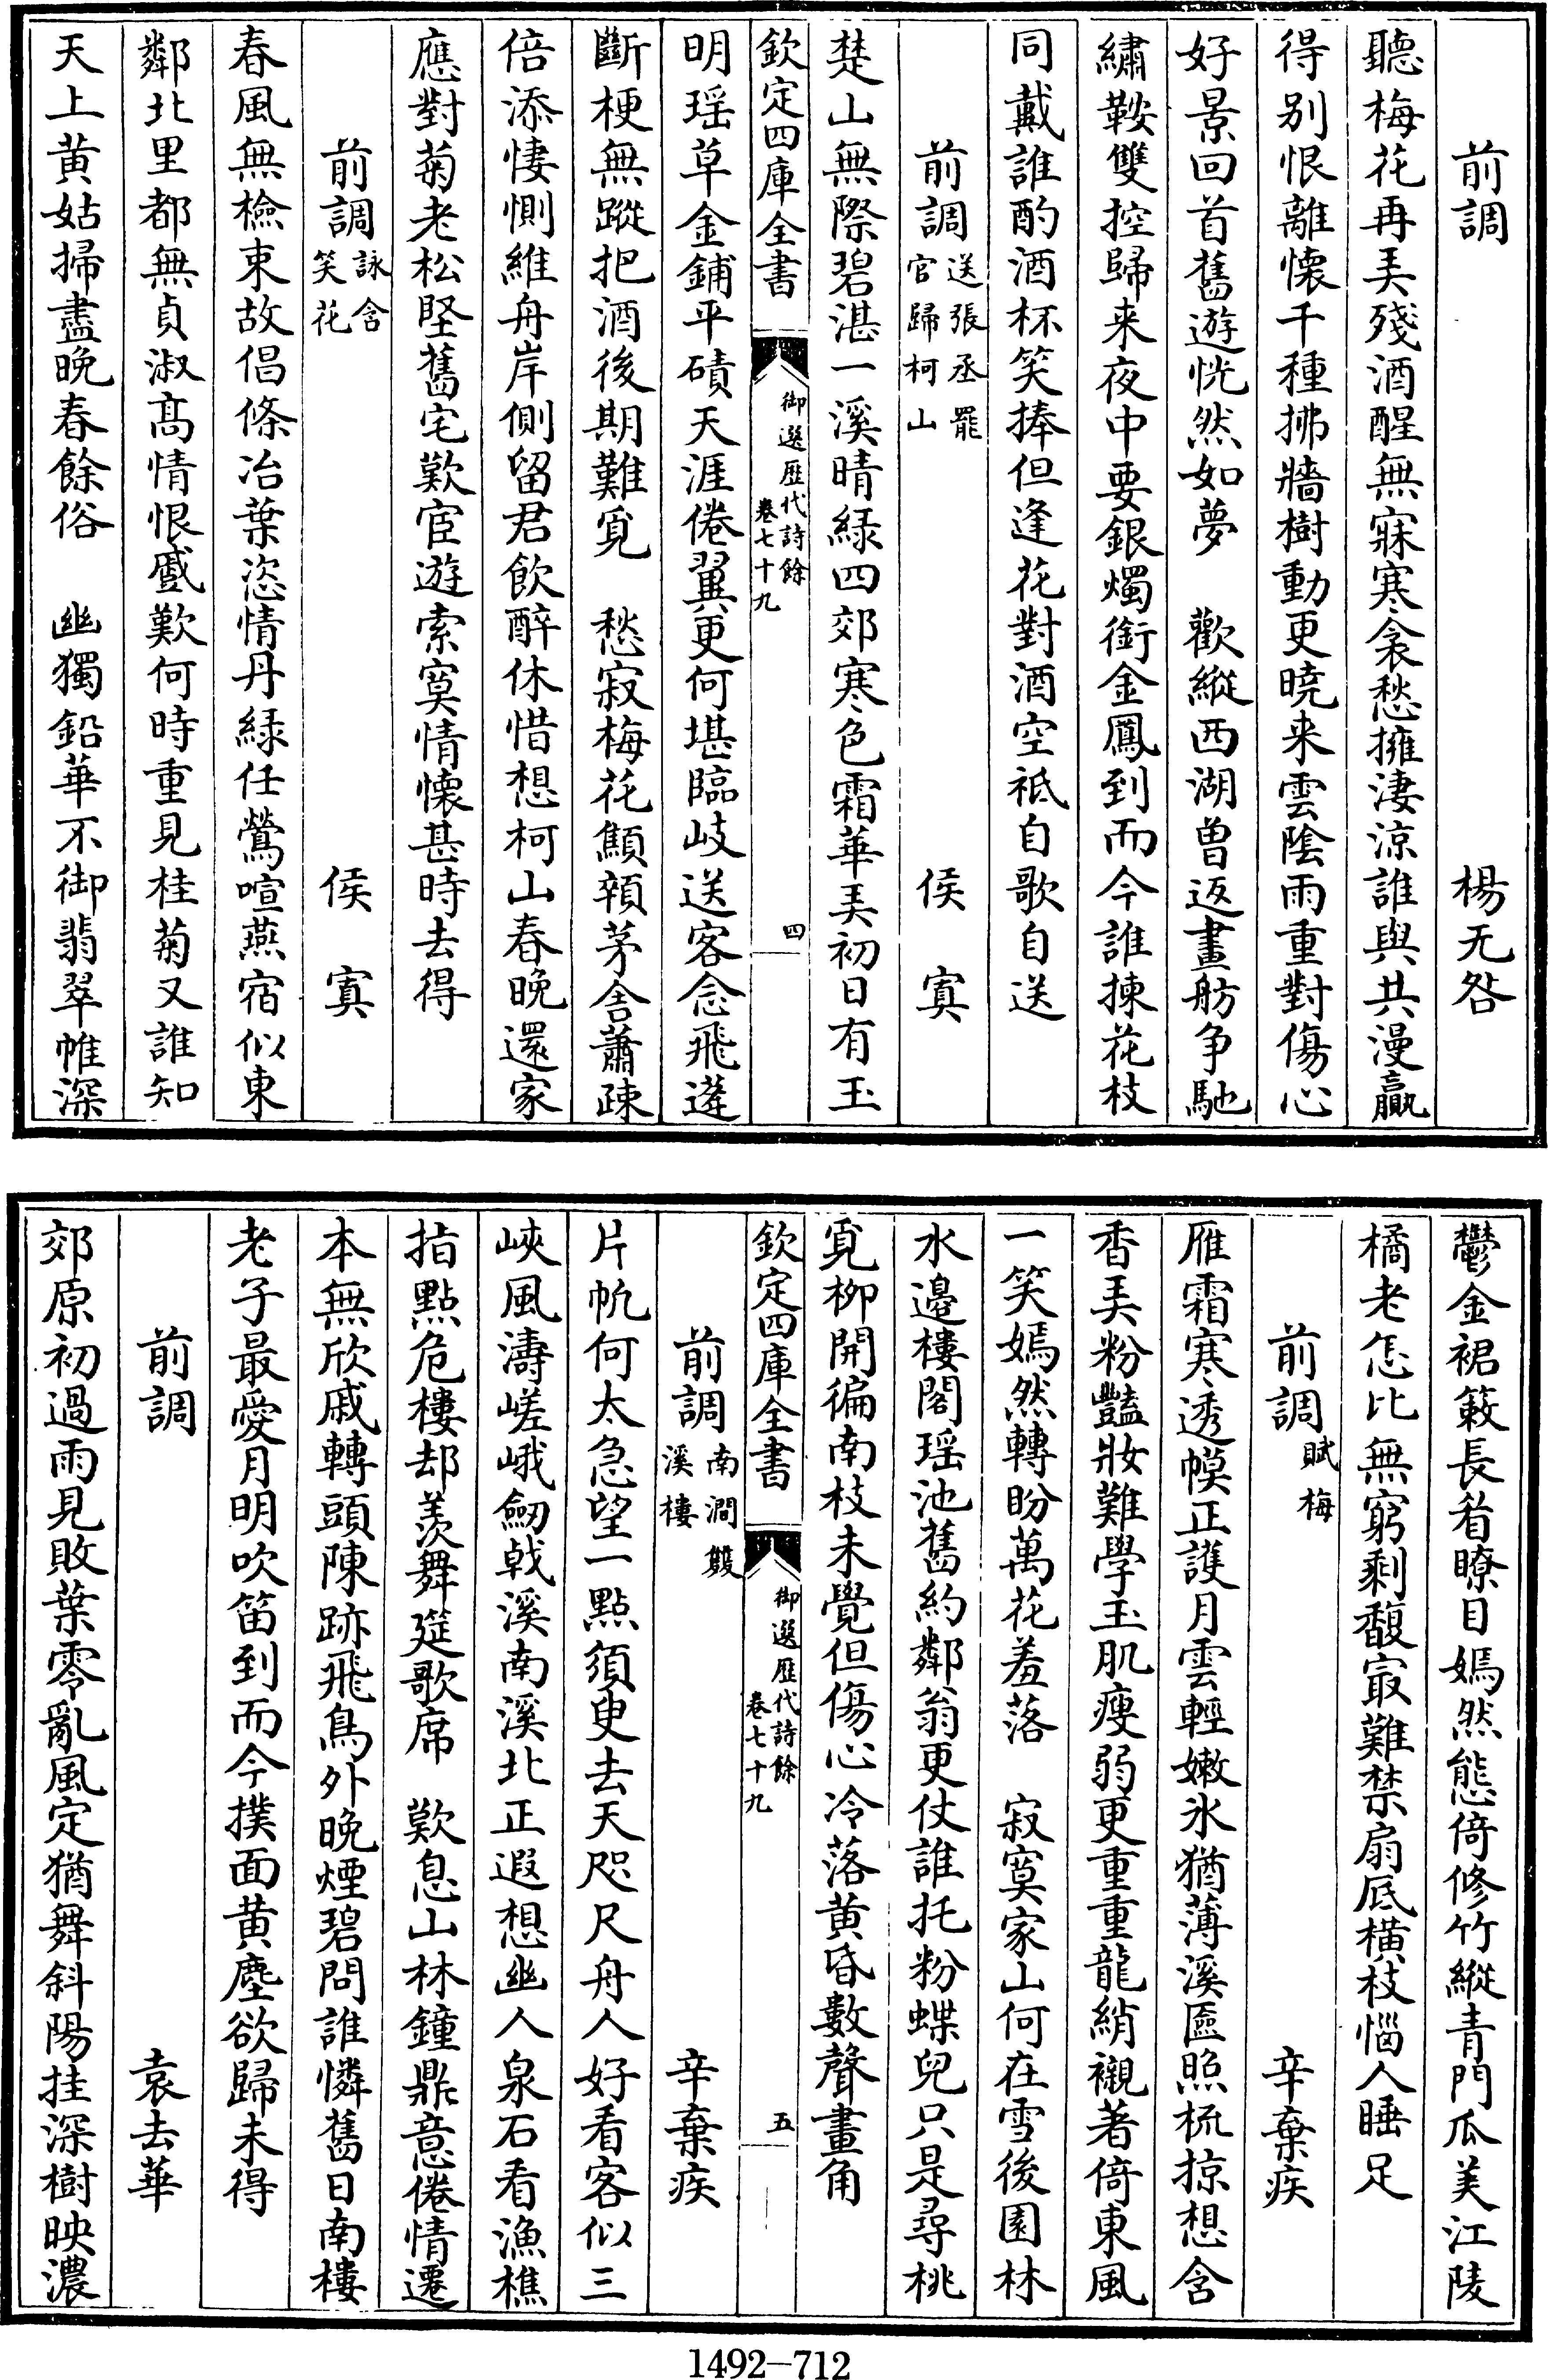 前調　楊无咎
聽梅花再弄殘酒醒無寐寒衾愁擁淒涼誰與共漫贏
得别恨離懷千種拂牆樹動更曉来雲陰雨重對傷心
好景回首舊遊恍然如夢　歡縱西湖曾返畫舫争馳
繡鞍雙控歸来夜中要銀燭銜金鳳到而今誰揀花枝
同戴誰酌酒杯笑捧但逢花對酒空祗自歌自送
前調送張丞罷官歸柯山　侯寘
楚山無際碧湛一溪晴緑四郊寒色霜華弄初日有玉
欽定四庫全書　御選歷代詩餘　卷七十九　四
明瑶草金鋪平磧天涯倦翼更何堪臨岐送客念飛蓬
斷梗無蹤把酒後期難覓　愁寂梅花顦顇茅舍蕭疎
倍添悽惻維舟岸側留君飲醉休惜想柯山春晚還家
應對菊老松堅舊宅歎宦遊索寞情懷甚時去得
前調詠含笑花　侯寘
春風無檢束故倡條冶葉恣情丹緑任鶯喧燕宿似東
鄰北里都無貞淑髙情恨蹙歎何時重見桂菊又誰知
天上黄姑掃盡晚春餘俗　幽獨鉛華不御翡翠帷深
鬱金裙簌長看瞭目嫣然態倚修竹縱青門瓜美江陵
橘老怎比無窮剩馥㝡難禁扇底横枝惱人睡足
前調賦梅　辛棄疾
雁霜寒透幙正護月雲輕嫩氷猶薄溪匳照梳掠想含
香弄粉豔妝難學玉肌瘦弱更重重龍綃襯著倚東風
一笑嫣然轉盼萬花羞落　寂寞家山何在雪後園林
水邊樓閣瑶池舊約鄰翁更仗誰托粉蝶兒只是尋桃
覓柳開徧南枝未覺但傷心冷落黄昏數聲畫角
欽定四庫全書　御選歷代詩餘　卷七十九　五
前調南澗雙溪樓　辛棄疾
片帆何太急望一點須臾去天咫尺舟人好看客似三
峽風濤嵯峨劒戟溪南溪北正遐想幽人泉石看漁樵
指點危樓却羨舞筵歌席　歎息山林鐘鼎意倦情遷
本無欣戚轉頭陳跡飛鳥外晚煙碧問誰憐舊日南樓
老子最愛月明吹笛到而今撲面黄塵欲歸未得
前調　袁去華
郊原初過雨見敗葉零亂風定猶舞斜陽挂深樹映濃
1492—712